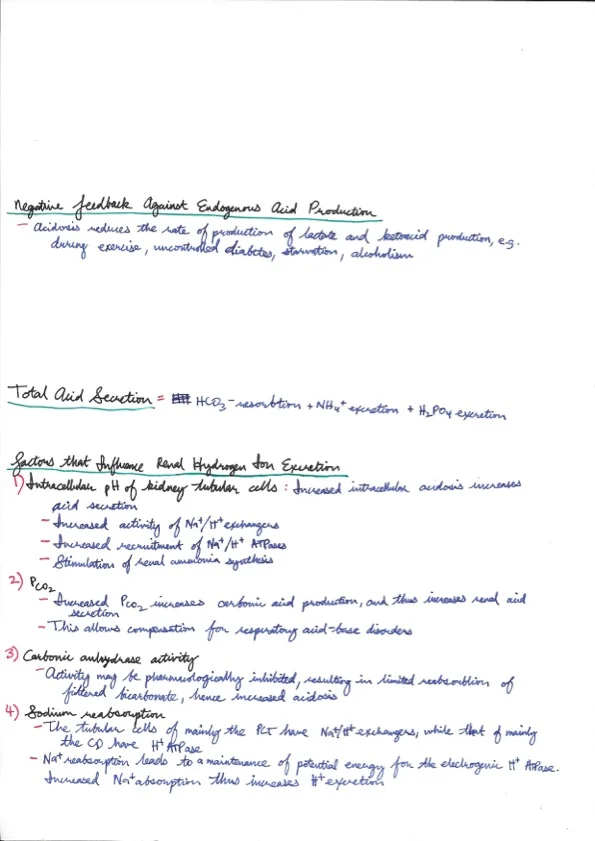 Negative Feedback Against Endogenous Acid Production
- Acidosis reduces the rate of production of lactate and ketoacid production, e.g.
during exercise, uncontrolled diabetes, starvation, alcoholism
Total Acid Secretion = HCO3- resorbtion + NH4+ excretion + H2PO4 excretion
Factors that Influence Renal Hydrogen Ion Excretion
1) Intracellular pH of kidney tubular cells : Increased intracellular acidosis increases
acid secretion
- Increased activity of Na+/H+ exchangers
- Increased recruitment of Na+/H+ ATPases
- Stimulation of renal ammonia synthesis
2) PCO2
- Increased PCO2 increases carbonic acid production, and thus increases renal acid
secretion
- This allows compensation for respiratory acid-base disorders
3) Carbonic anhydrase activity
- Activity may be pharmacologically inhibited, resulting in limited reabsorbtion of
filtered bicarbonate, hence increased acidosis
4) Sodium reabsorption
- The tubular cells of mainly the PCT have Na+/H+ exchangers, while that of mainly
the CD have H+ ATPase
- Na+ reabsorption leads to a maintenance of potential energy for the electrogenic H+ ATPase.
Increased Na+ absorption thus increases H+ excretion